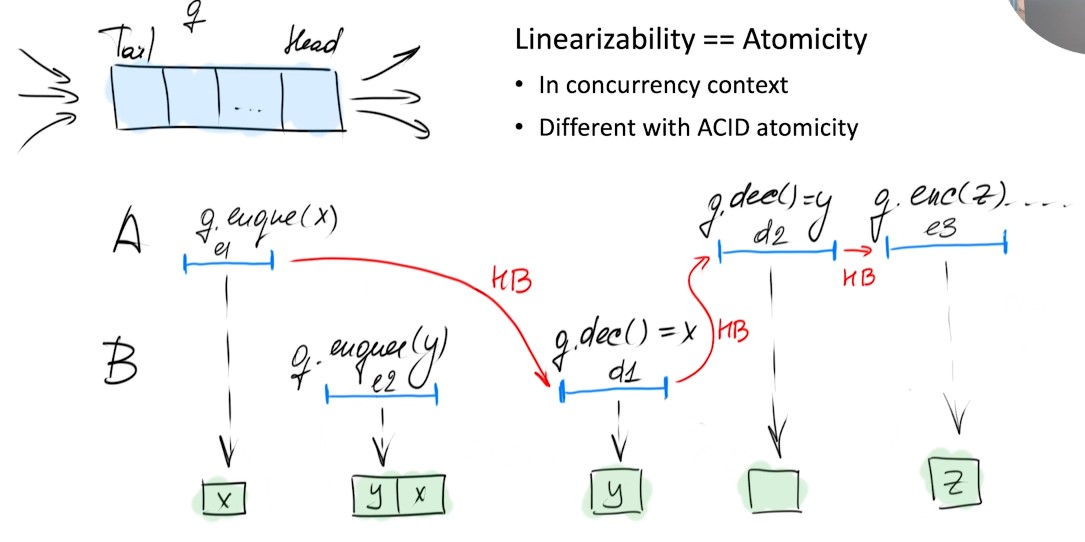 q
Tail Head
...
Linearizability == Atomicity
• In concurrency context
• Different with ACID atomicity
A
q.enque(x)
e1
q.deel()=y
d2
q.enc(z).....
e3
HB
HB
HB
B
q.enquee(y)
e2
q.dec() = x
d1
x
y x
y
z